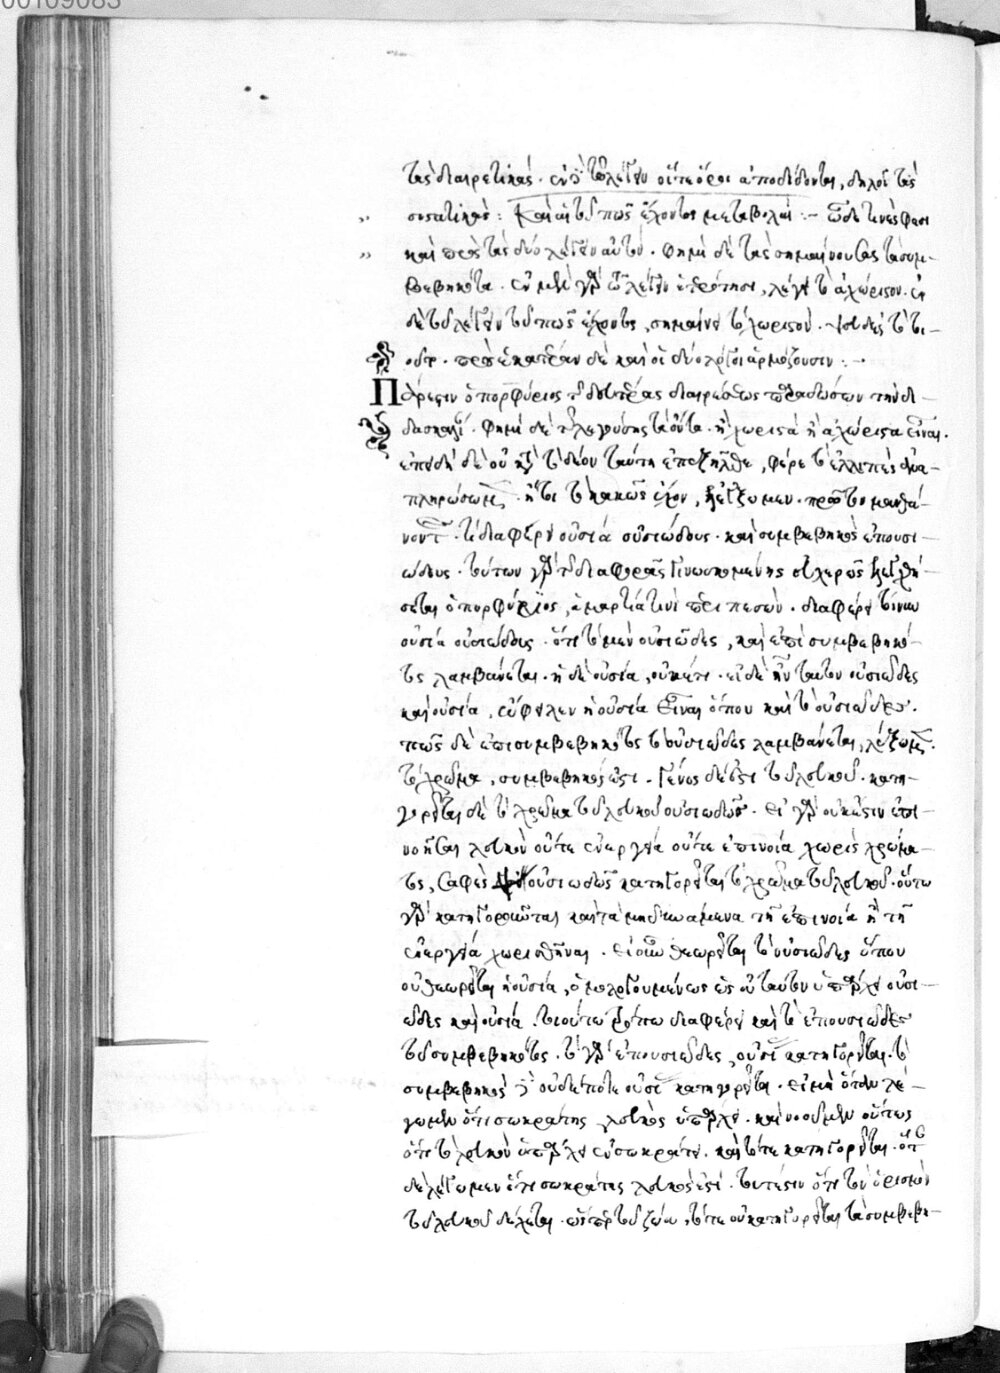 00109083
τὰς διαιρετικάς. ἐν δὲ τῷ λέγειν οἵ τε ὅροι ἀποδίδονται, δηλοῖ τὰς
συστατικάς: Καὶ αἱ τοῦ πως ἔχοντος μεταβολαί :~ τινές φασι
καὶ πρὸς τὰς δύο λέγειν αὐτόν. φημὶ δὲ τὰς σημαινούσας τὰ συμ-
βεβηκότα. ἐν μὲν γὰρ τῷ λέγειν ἑτερότησι, λέγει τὸ ἀχώριστον. ἐν
δὲ τῷ λέγειν τοῦ πως ἔχοντος, σημαίνει τὸ χωριστόν.
πρὸς ἑκατέραν δὲ καὶ οἱ δύο λόγοι ἁρμόζουσιν :~
Πάρεισιν ὁ πορφύριος τῆς δευτέρας διαιρέσεως παραδώσων τὴν δι-
δασκαλίαν. φημὶ δὲ τῆς λεγούσης τὰ ὄντα. ἢ χωριστὰ ἢ ἀχώριστα εἶναι.
ἐπειδὴ δὲ οὐ κατὰ τὸ δέον ταύτῃ ἐπεξῆλθε, φέρε τὸ ἐλλιπὲς ἀνα-
πληρώσωμεν. ἤτοι τὸ κακῶς ἔχον, ἐξετάξωμεν. πρῶτον μανθά-
νοντες. τί διαφέρει οὐσία οὐσιώδους. καὶ συμβεβηκὸς ἐπουσι-
ώδους. τούτων γὰρ τῆς διαφορᾶς γινωσκομένης εὐχερῶς
ὁ πορφύριος, ἁμαρτία τινὶ περιπεσών. διαφέρει τοίνυν
οὐσία οὐσιώδους. ὅτι τὸ μὲν οὐσιῶδες, καὶ ἐπὶ συμβεβηκό-
τος λαμβάνεται. ἡ δὲ οὐσία, οὐκέτι. εἰ δὲ ἦν ταυτὸν οὐσιῶδες
καὶ οὐσία, ὤφειλεν ἡ οὐσία εἶναι ὅπου καὶ τὸ οὐσιῶδες.
πῶς δὲ ἐπὶ συμβεβηκότος τὸ οὐσιῶδες λαμβάνεται, λέξωμεν.
τὸ χρῶμα, συμβεβηκός ἐστι. γένος δέ ἐστι τοῦ λευκοῦ. κατη-
γορεῖται δὲ τὸ χρῶμα τοῦ λευκοῦ οὐσιωδῶς. εἰ γὰρ οὐκ ἔστιν ἐπι-
νοῆσαι λευκὸν οὔτε ἐνεργείᾳ οὔτε ἐπινοίᾳ χωρὶς χρώμα-
τος, σαφὲς οὐσιωδῶς κατηγορεῖται τὸ χρῶμα τοῦ λευκοῦ. οὕτω
γὰρ καὶ τὰ μὴ δυνάμενα τῇ ἐπινοίᾳ ἢ τῇ
ἐνεργείᾳ χωρισθῆναι. εἰ οὖν θεωρεῖται τὸ οὐσιῶδες ὅπου
οὐ θεωρεῖται ἡ οὐσία, ὁμολογουμένως ὡς οὐ ταυτὸν ὑπάρχει οὐσι-
ῶδες καὶ οὐσία. τοιούτῳ τρόπῳ διαφέρει καὶ τὸ ἐπουσιῶδες
τοῦ συμβεβηκότος. τὸ γὰρ ἐπουσιῶδες, οὐσίας κατηγορεῖται. τὸ
συμβεβηκὸς δὲ οὐδέποτε οὐσίας κατηγορεῖται. εἰ μὴ ὅταν λέ-
γωμεν ὅτι σωκράτης λευκὸς ὑπάρχει. καὶ νοοῦμεν οὕτως
ὅτι τὸ λευκὸν ὑπάρχει ἐν σωκράτει. καὶ τότε κατηγορεῖται. ὅταν
δὲ λέγωμεν ὅτι σωκράτης λευκός ἐστί. τουτέστιν ὅτι τὸν ὁρισμὸν
τοῦ λευκοῦ δέχεται. ὥσπερ τοῦ ζῴου, τότε οὐ κατηγορεῖται τὰ συμβεβη-